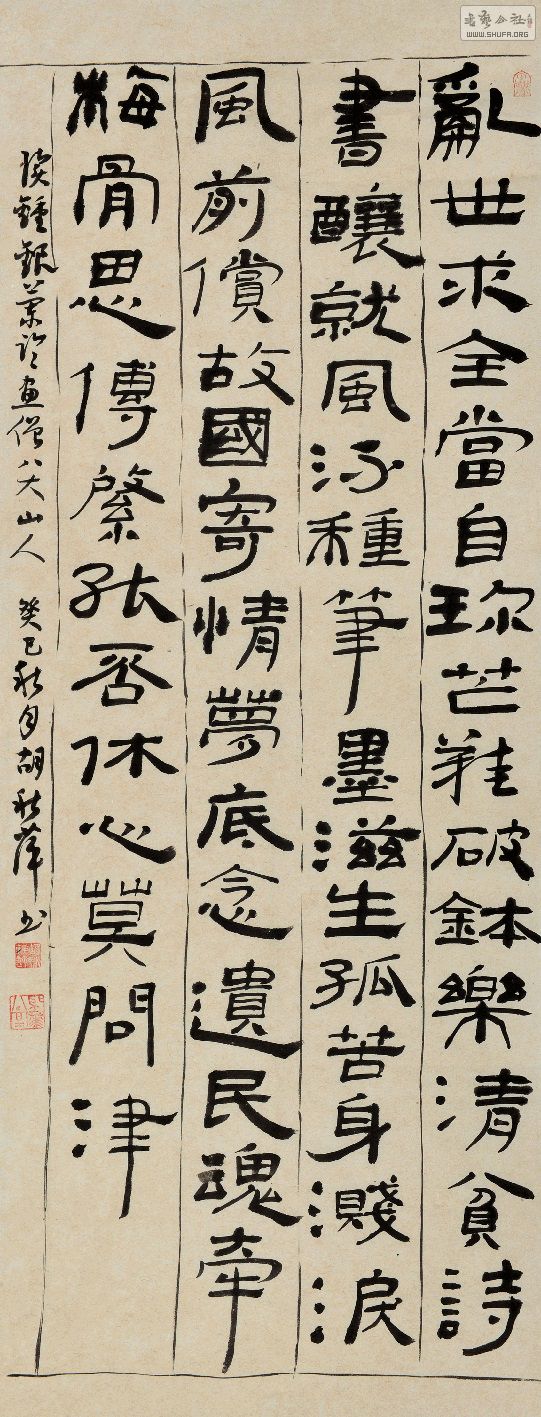 亂世求全當自珎芒鞋破鉢樂清貧詩
書釀就風涿種筆墨滋生孤苦身濺淚
風前償故國寄情夢底念遺民魂牽
梅骨思傳綮張否休心莫問津
讀鍾銀蘭論畫僧八大山人 癸巳秋月胡秋萍书
WWW.SHUFA.ORG